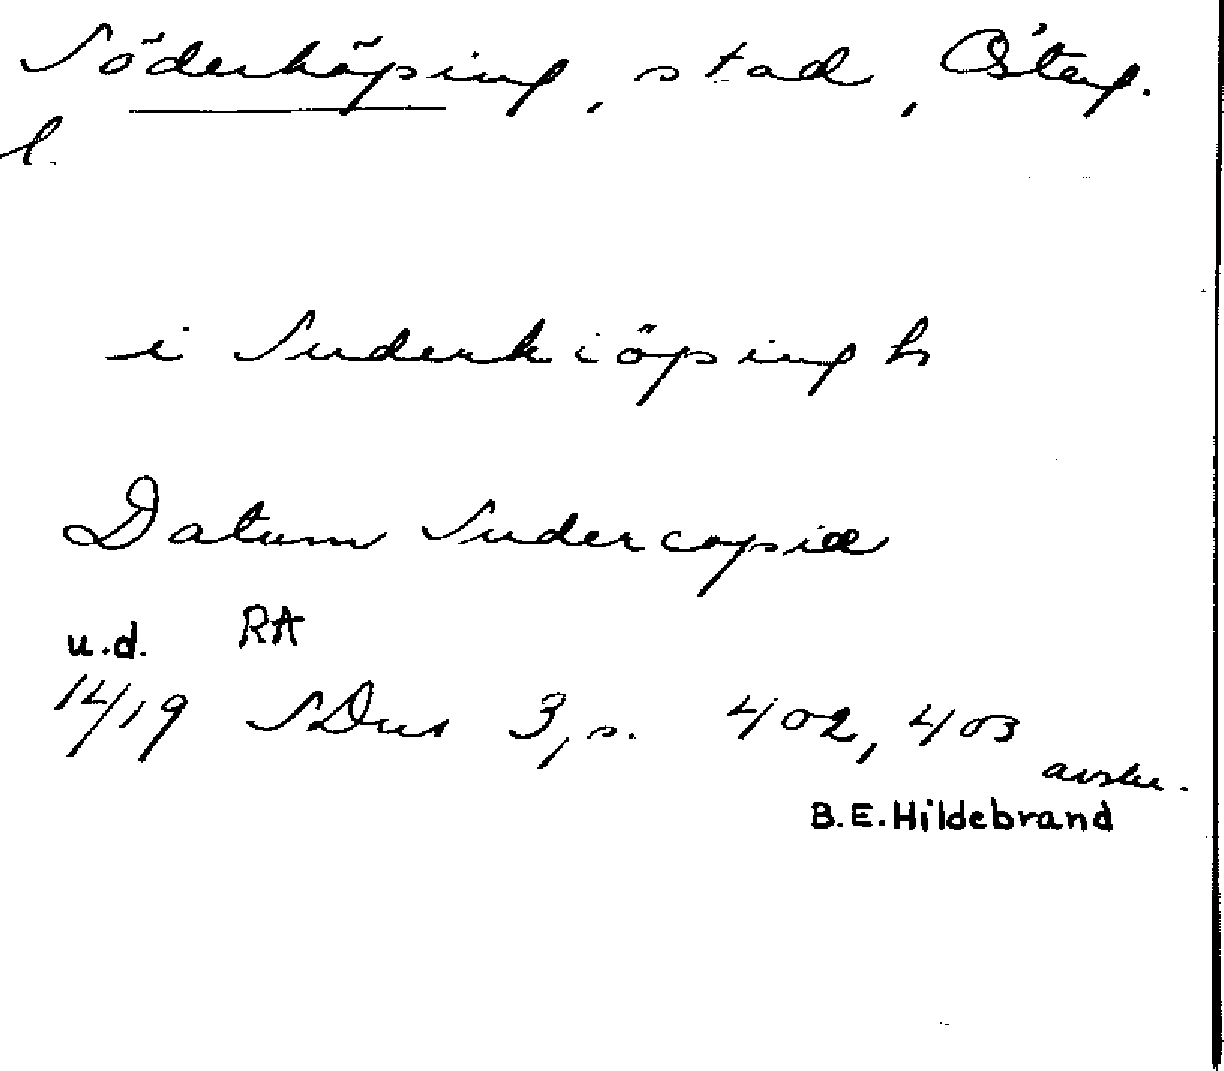 Söderköping, stad, Österg.
l.
i Suderkiöpingh
Datum Sudercopiæ
u.d. RA
14/19 SDns 3, s. 402, 403
avskr.
B.E.Hildebrand